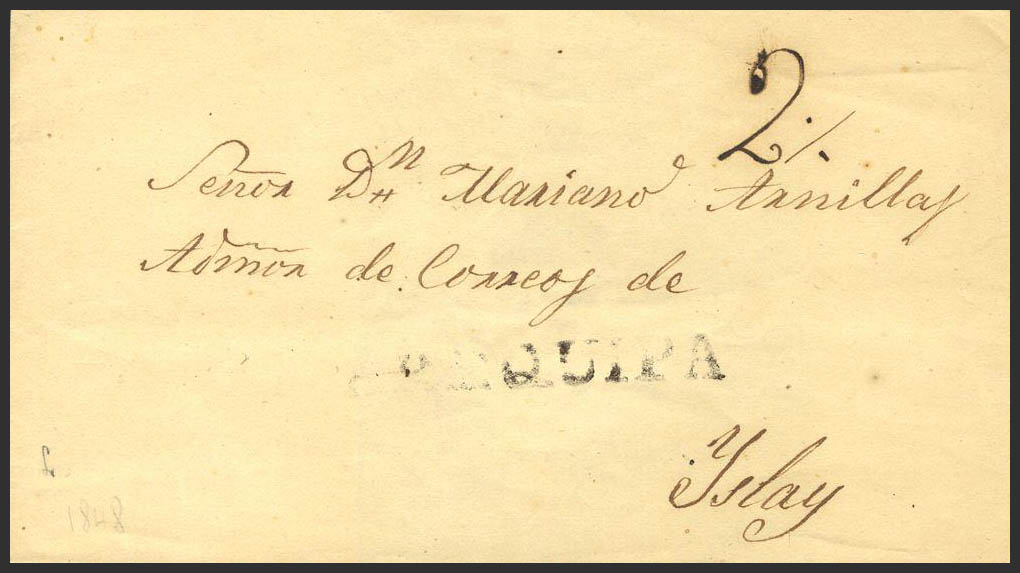 2/.
Señor Dn Mariano Arnillas
Admõr de Correos de
AREQUIPA
Yslay
1848